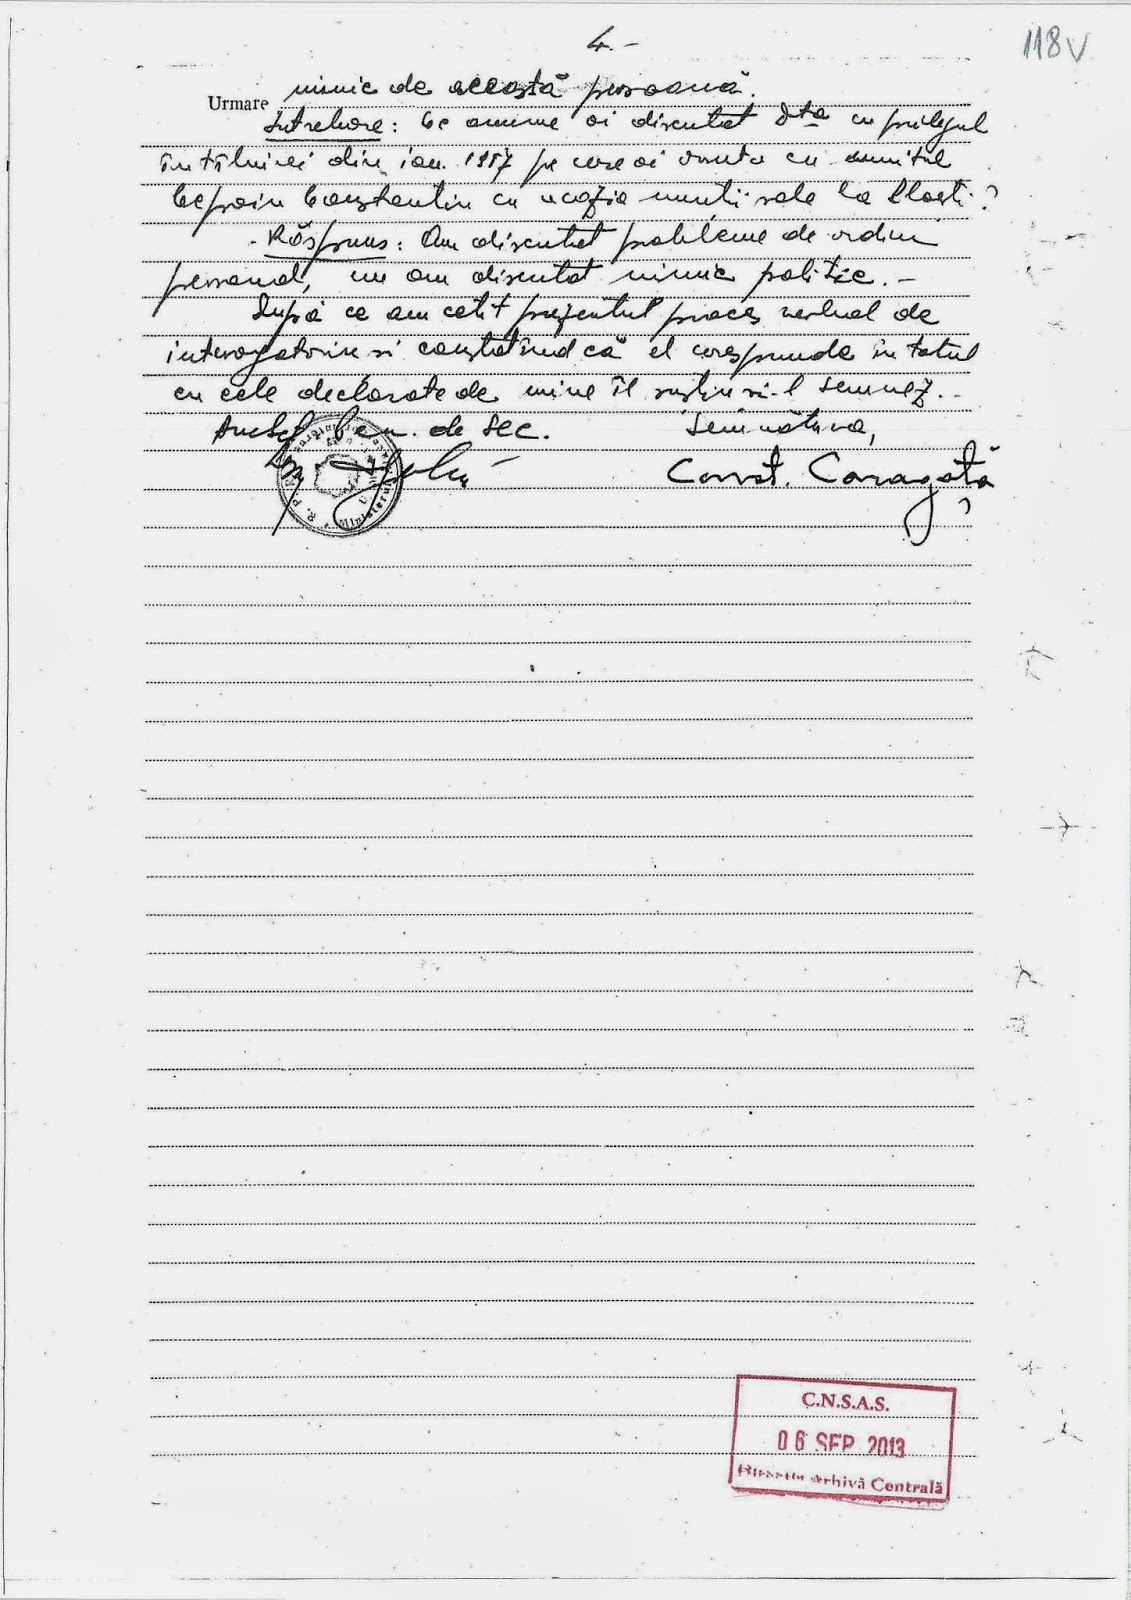 4.-
118v
Urmare nimic de această persoană.
Întrebare: Ce anume ai discutat Dta cu prilejul
întîlnirei din ian. 1957 pe care ai avut-o cu numitul
Constantin cu ocazia nunții sale la ?
- Răspuns: Am discutat probleme de ordin
personal, nu am discutat nimic politic.-
După ce am cetit prezentul proces verbal de
interogatoriu si constatînd că el corespunde în totul
cu cele declarate de mine îl susțin si-l semnez..
de sec.
Semnătura,
Const. Caragață
R.P.
Ministerul
C.N.S.A.S.
06 SEP 2013
Arhivă Centrală